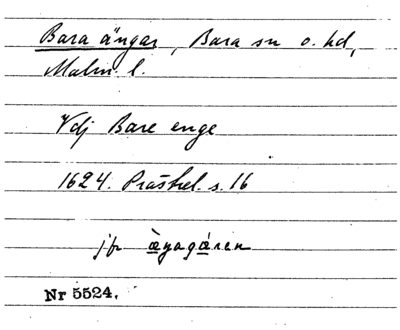 Bara ängar, Bara sn o. hd,
Malm. l.
Vdj Bare enge
1624. Prästrel. s. 16
jfr
Nr 5524.